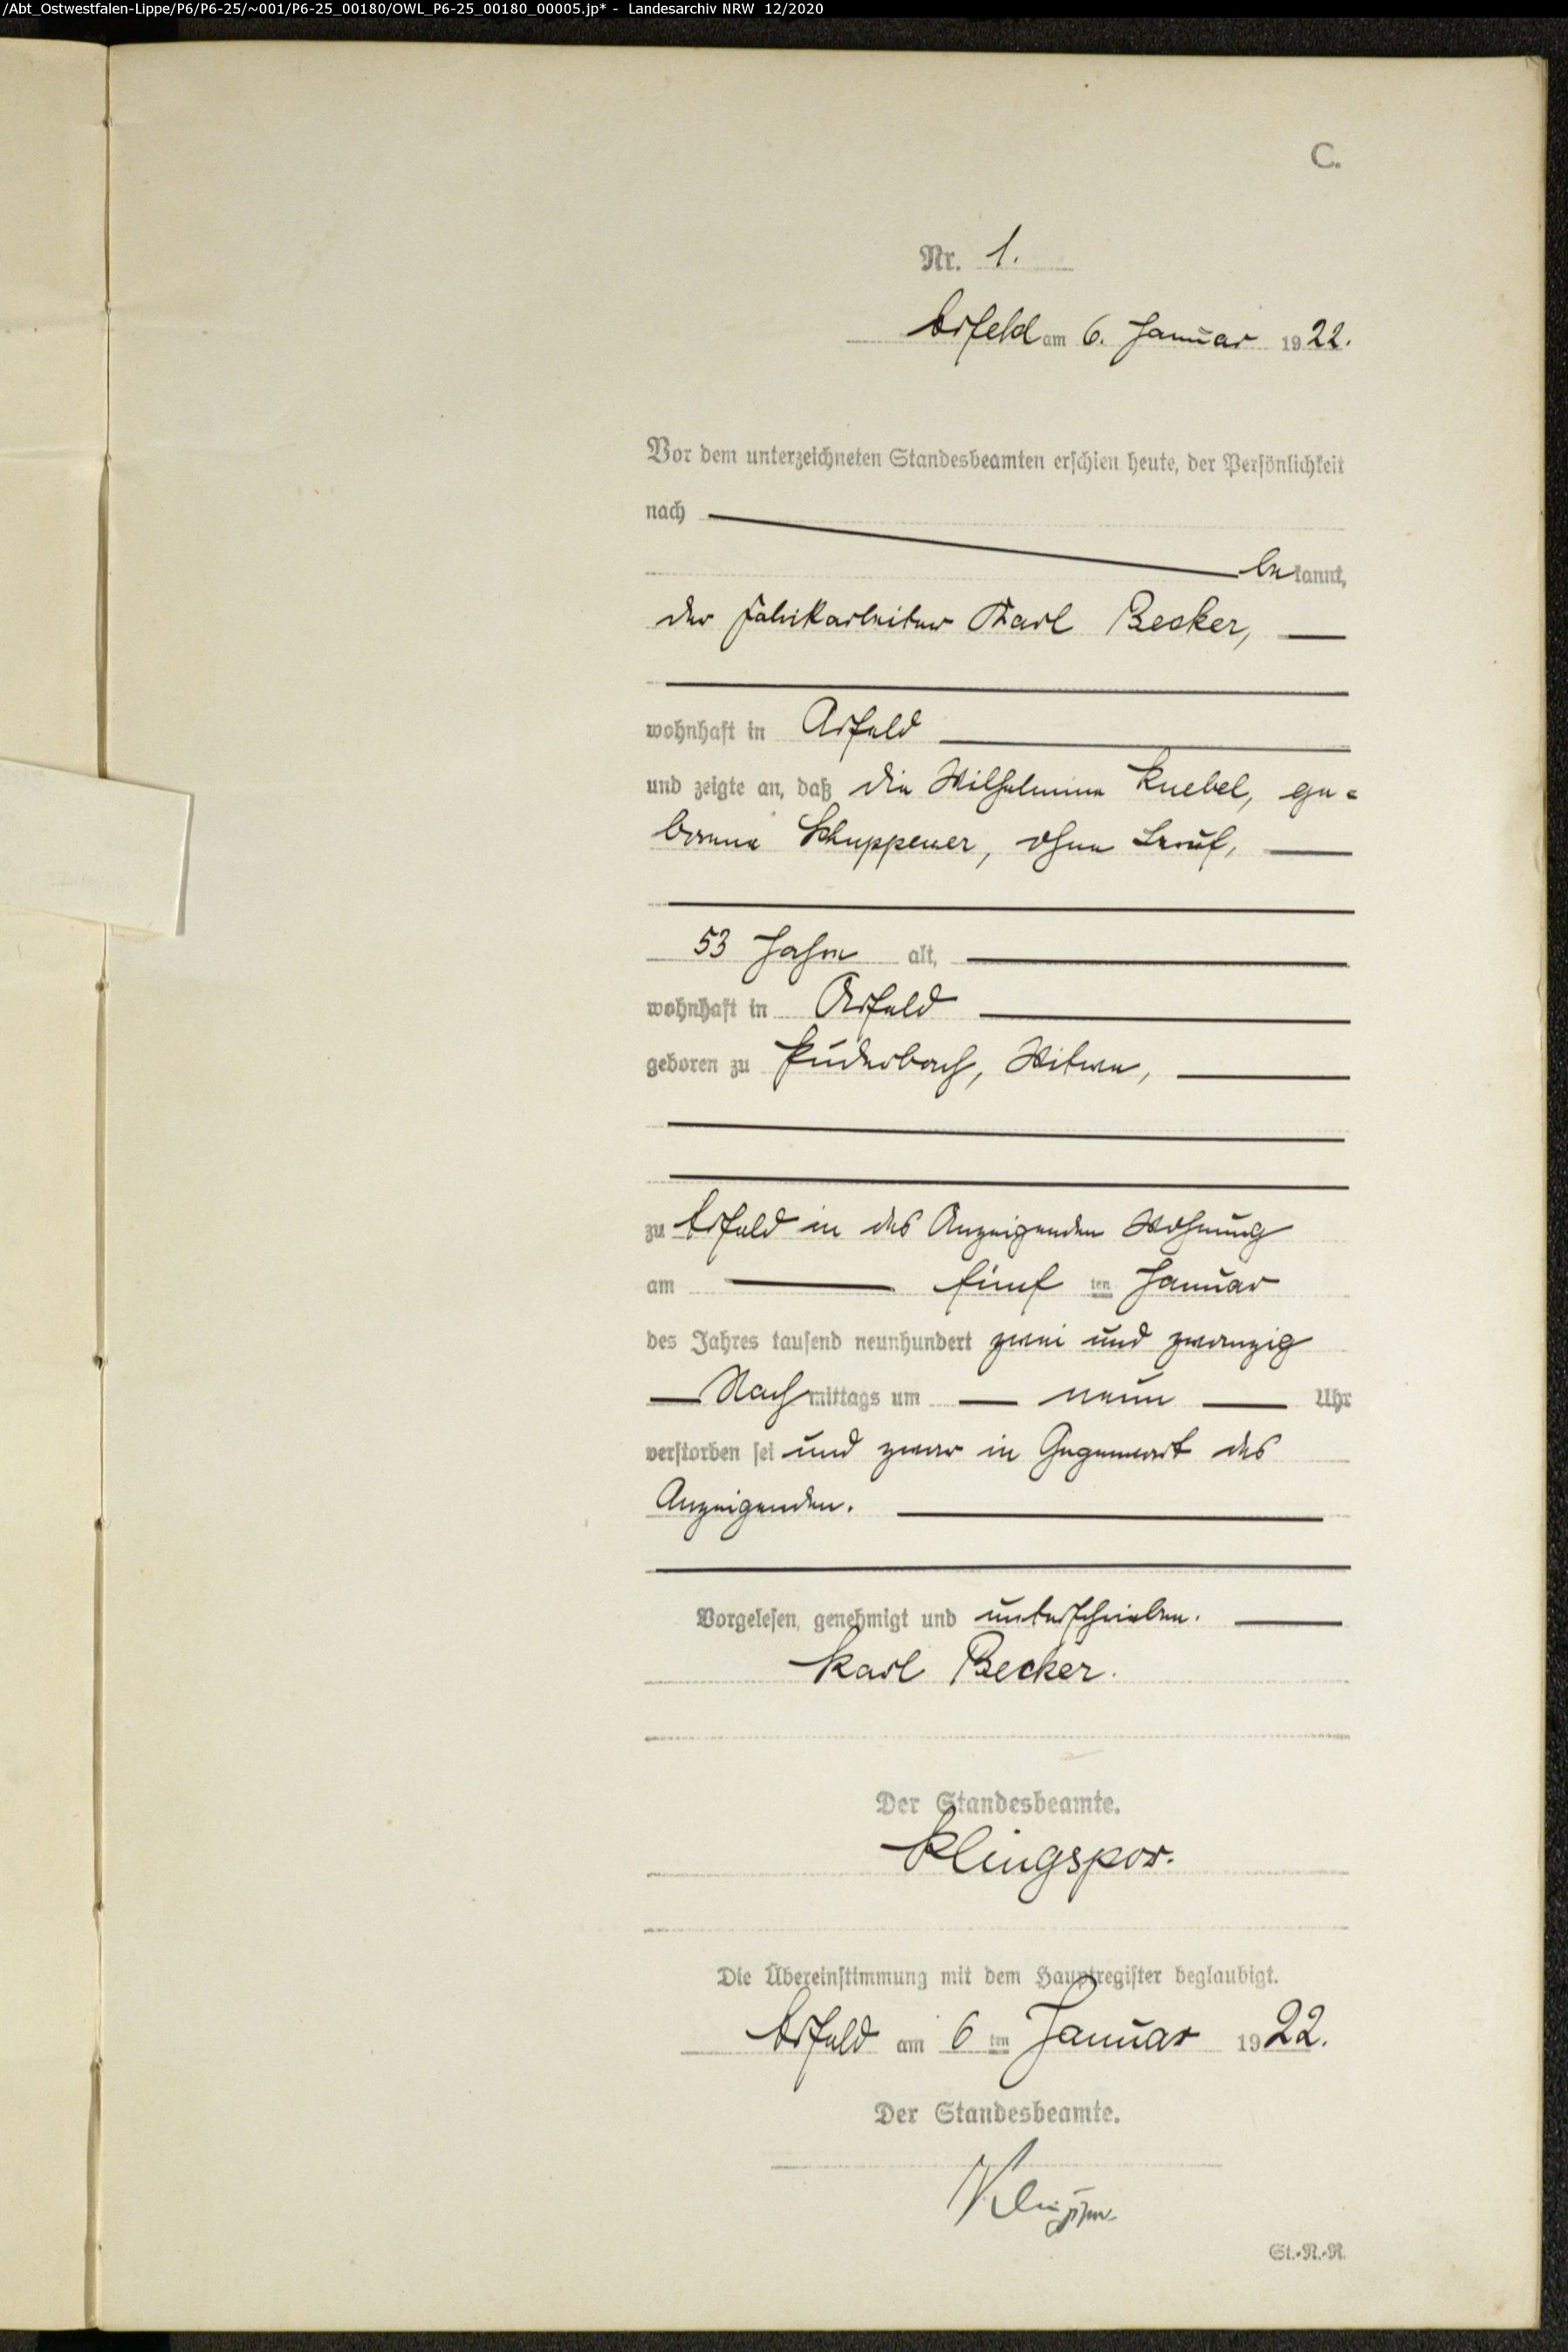 /Abt_Ostwestfalen-Lippe/P6/P6-25/~001/P6-25_00180/OWL_P6-25_00180_00005.jp* - Landesarchiv NRW 12/2020
C.
Nr. 1.
Arfeld am 6. Januar 1922.
Vor dem unterzeichneten Standesbeamten erschien heute, der Persönlichkeit
nach
bekannt,
der Fabrikarbeiter Karl Becker,
wohnhaft in Arfeld
und zeigte an, daß die Wilhelmine Knebel, ge=
borene Schuppener, ohne Beruf,
53 Jahre alt,
wohnhaft in Arfeld
geboren zu Puderbach, Witwe,
zu Arfeld in des Anzeigenden Wohnung
am fünf ten Januar
des Jahres tausend neunhundert zwei und zwanzig
Nachmittags um neun Uhr
verstorben sei und zwar in Gegenwart des
Anzeigenden.
Vorgelesen, genehmigt und unterschrieben.
Karl Becker.
Der Standesbeamte.
Klingspor.
Die Übereinstimmung mit dem Hauptregister beglaubigt.
Arfeld am 6 ten Januar 1922.
Der Standesbeamte.
Klingspor
St.-N.-R.